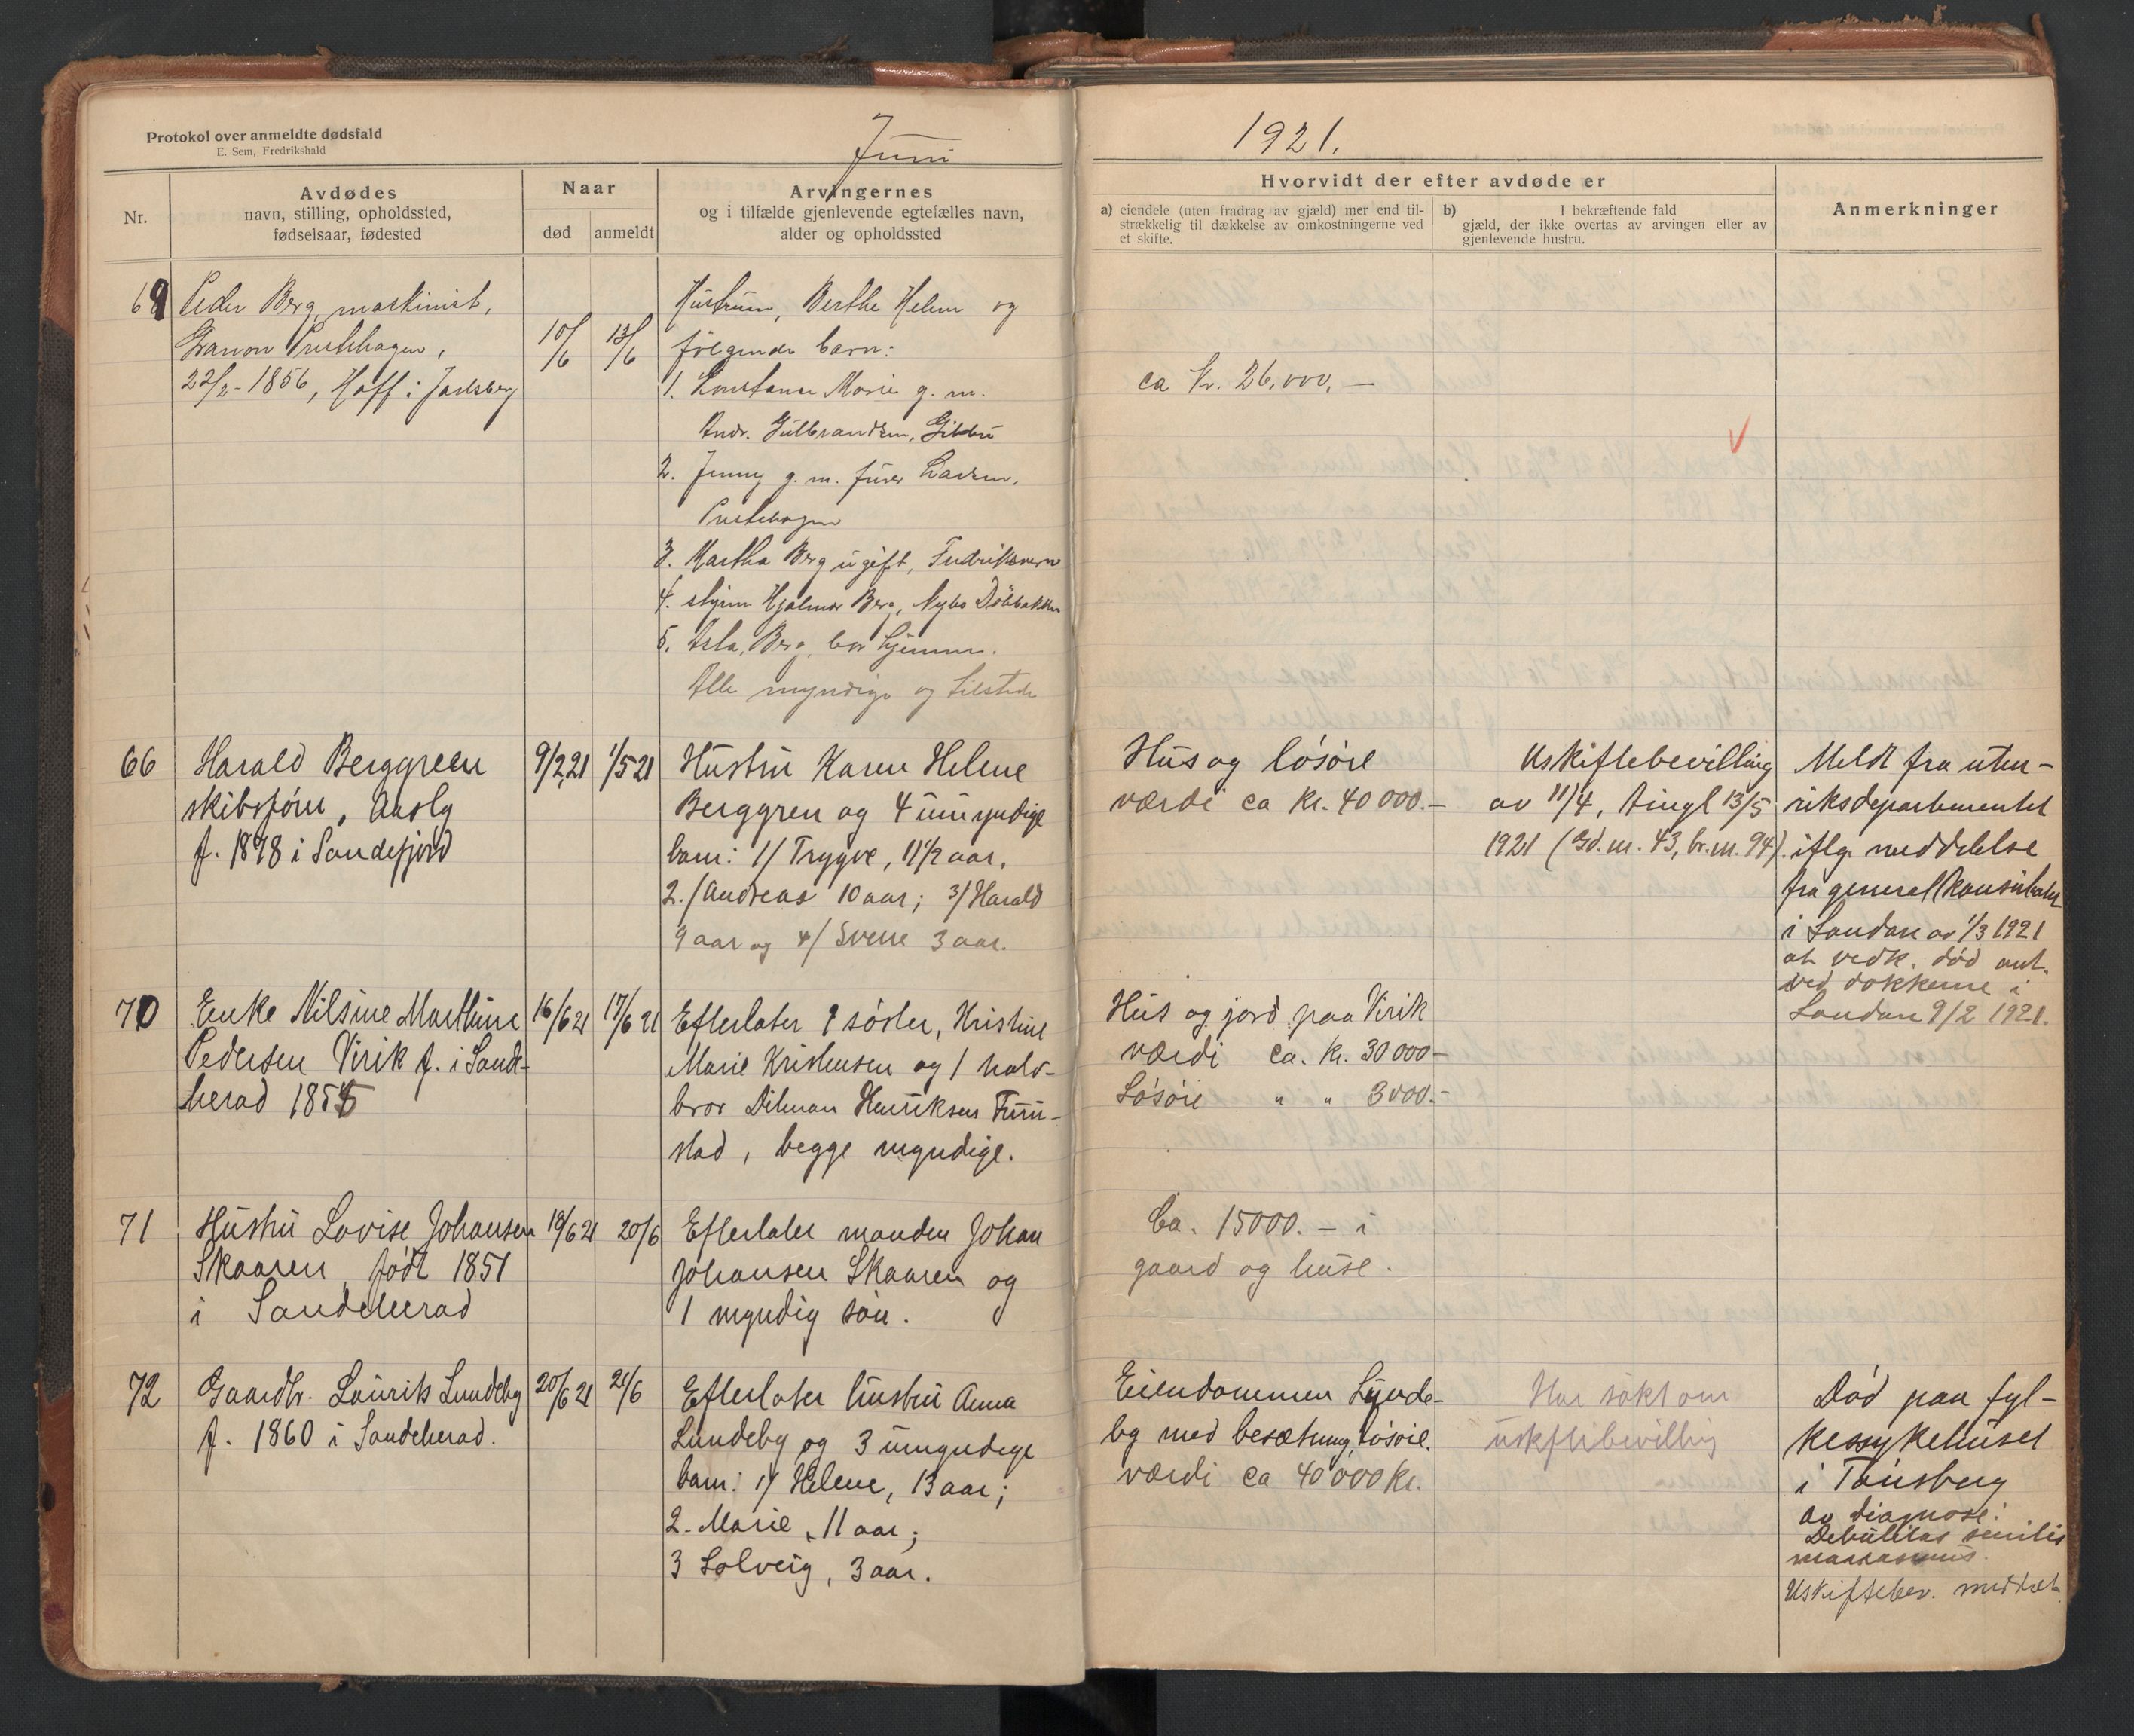 Protokol over anmeldte dødsfald
E. Sem, Fredrikshald
Juni
1921.
Nr.
Avdødes
navn, stilling, opholdssted,
fødselsaar, fødested
Naar
død
anmeldt
Arvingernes
og i tilfælde gjenlevende egtefælles navn,
alder og opholdssted
Hvorvidt der efter avdøde er
a) eiendele (uten fradrag av gjæld) mer end til-
strækkelig til dækkelse av omkostningerne ved
et skifte.
b) I bekræftende fald
gjæld, der ikke overtas av arvingen eller av
gjenlevende hustru.
Anmerkninger
69
Peder Berg, maskinist,
Prestehagen,
22/2-1856, Hoff i Jarlsberg
10/6
13/6
Hustruen, Berthe Helene og
følgende barn:
1. Konstanse Marie g. m.
Andr. Gulbrandsen,
2. Jenny g. m. Larsen,
Prestehagen
3. Martha Berg ugift, Fredriksvern
4. Hjalmar Berg, Nybo
5. Asta Berg, bor hjemme.
Alle myndige og tilstede
ca kr. 26,000,—
66
Harald Berggreen
skibsfører, Aasly
f. 1878 i Sandefjord
9/2 21
1/5 21
Hustru Karen Helene
Berggren og 4 umyndige
barn: 1/ Trygve, 11 1/2 aar,
2./ Andreas 10 aar; 3/ Harald
9 aar og 4/ Sverre 3 aar.
Hus og løsøre
værdi ca kr. 40 000.—
Uskiftebevilling
av 11/4, tingl 13/5
1921 (Gd. nr. 43, br. nr. 94).
Meldt fra uten-
riksdepartementet
iflg. meddelelse
fra generalkonsulatet
i London av 1/3 1921
at vedk. død ant.
ved dokkerne i
London 9/2 1921.
70
Enke Nilsine Marthine
Pedersen Virik f. i Sande-
herad 1855
16/6 21
17/6 21
Efterlater 1 søster, Kristine
Marie Kristensen og 1 halv-
bror Henriksen
stad, begge myndige.
Hus og jord paa Virik
værdi ca. kr. 30 000—
Løsøre " " 3000.—
71
Hustru Lovise Johansen
Skaaren, født 1851
i Sandeherad
19/6 21
20/6
Efterlater manden Johan
Johansen Skaaren og
1 myndig søn.
Ca. 15000.— i
gaard og huse.
72
Gaardbr. Laurits Lundeby
f. 1860 i Sandeherad.
20/6 21
21/6
Efterlater hustru Anna
Lundeby og 3 umyndige
barn: 1/ Helene, 13 aar;
2. Marie, 11 aar;
3 Solveig, 3 aar.
Eiendommen Lunde-
by med besætning, løsøre.
værdi ca 40 000 kr.
Har søkt om
uskiftebevilling
Død paa fyl-
kessykehuset
i Tønsberg
av diagnose:
Debilitas senilis
marasmus.
Uskiftebev. meddelt